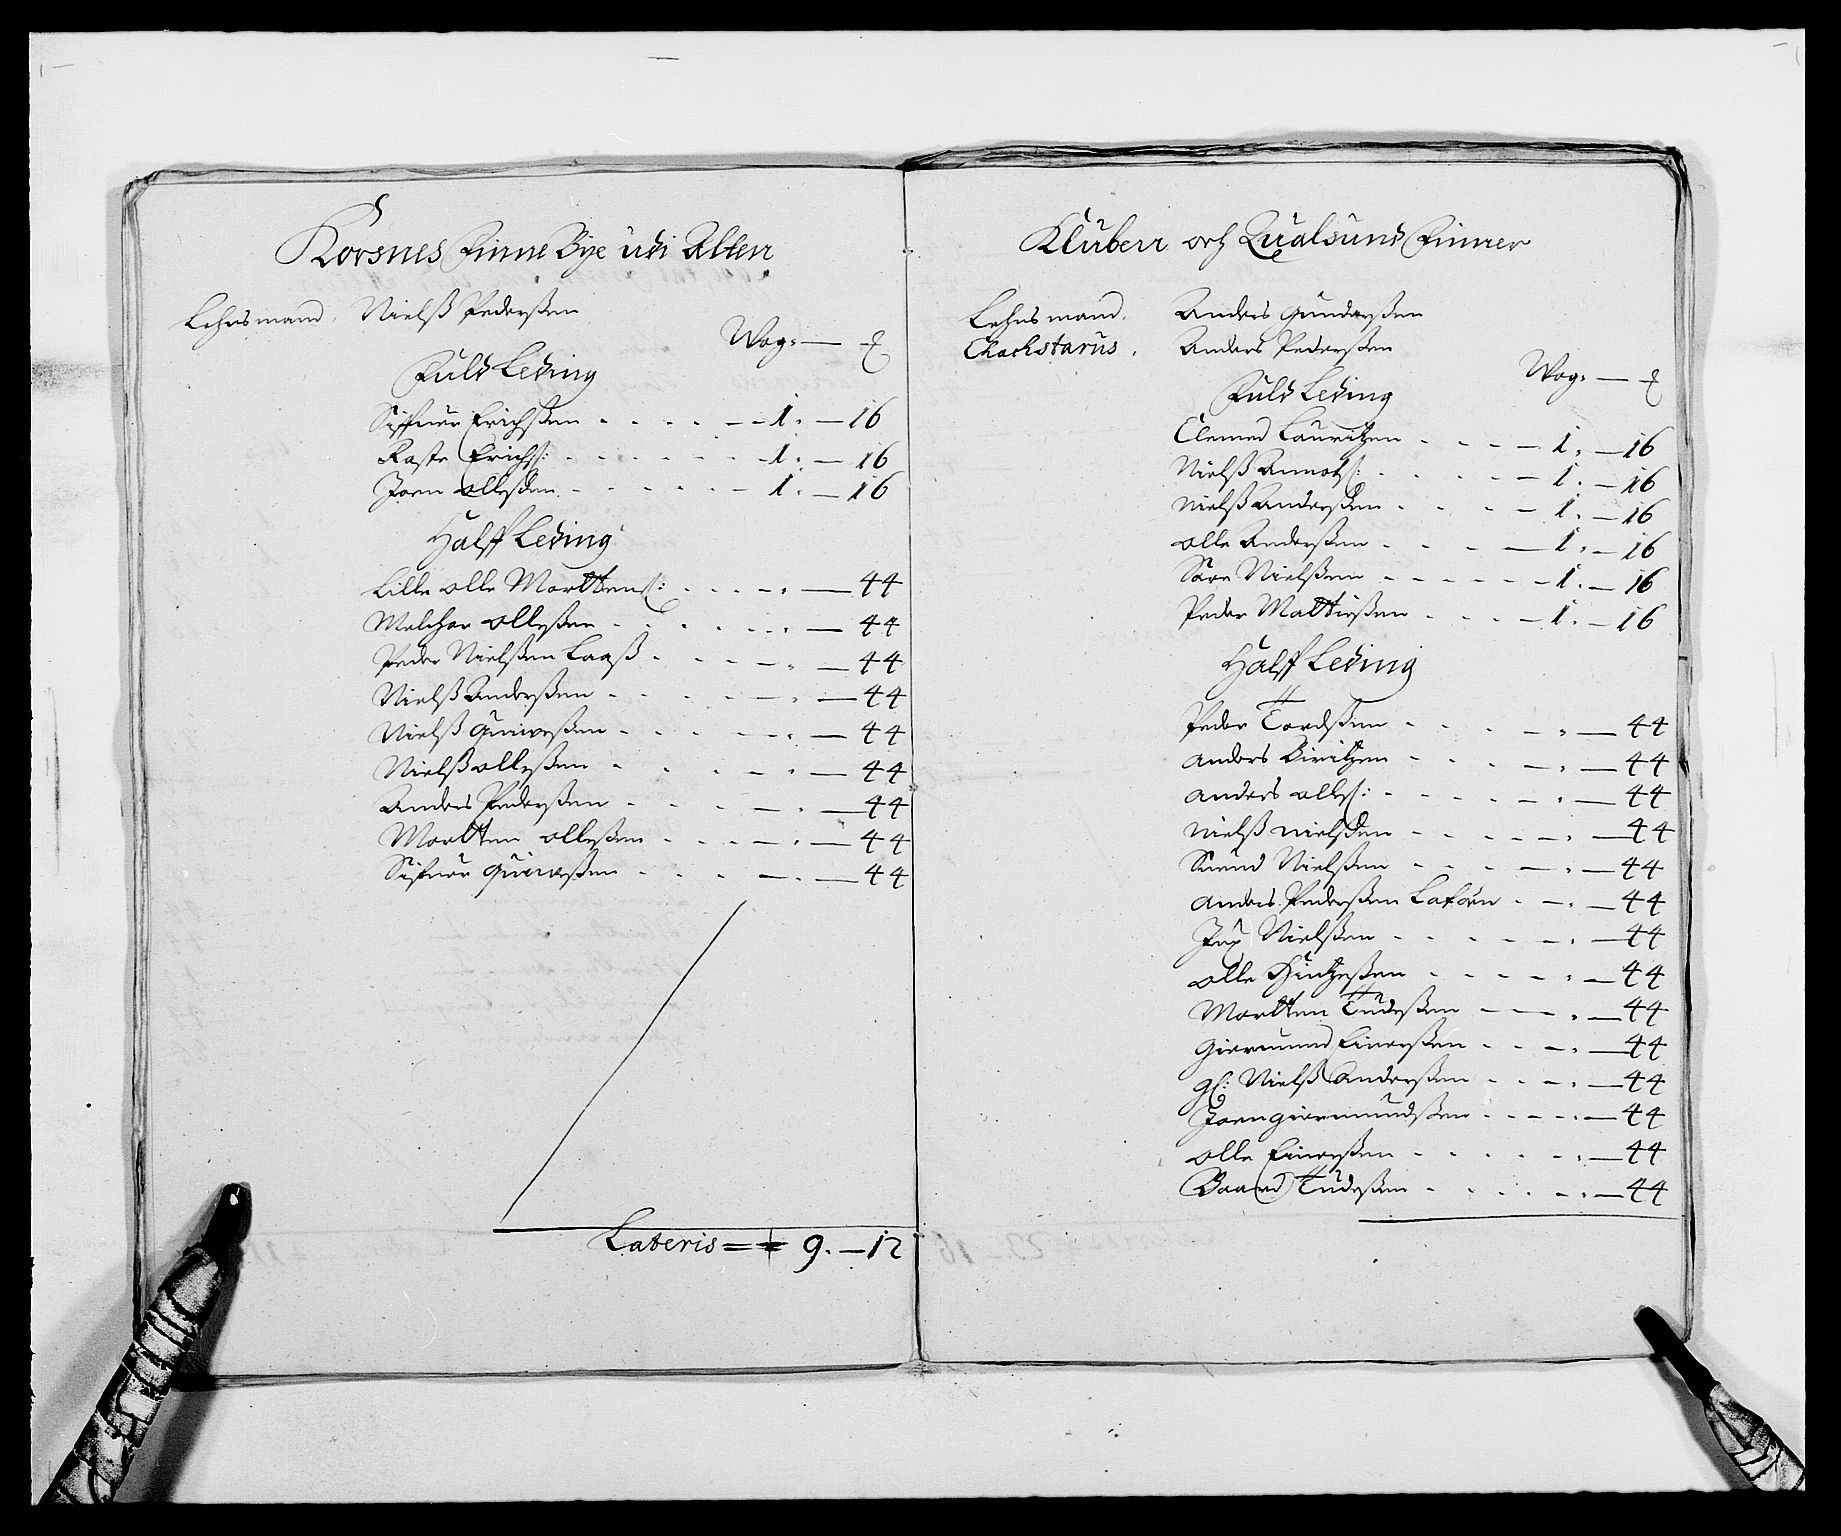 Korsnes Finne Bye udi Alten
Lehnsmand. Nielß Pederßen
Wog: — ℔
Fuld Leding
Siffuer Erichßen - - - - - 1. — 16
Raste Erichs: - - - - - 1. — 16
Joen Olleßen - - - - - 1. — 16
Halff Leding
Lille Olle Morttens: - - - - — 44
Melcher Olleßen - - - - — 44
Peder Nielßen Laaß - - - - — 44
Nielß Anderßen - - - - — 44
Nielß Quiveßen - - - - — 44
Nielß Olleßen - - - - — 44
Anders Pederßen - - - - — 44
Mortten Olleßen - - - - — 44
Sifuer Quiveßen - - - - — 44
Lateris = 9. — 12
Kluben och Qualsund Finner
Lehnsmand. Anders Gunderßen
Chachstarus. Anders Pederßen
Wog: — ℔
Fuld Leding
Clemed Lauritzen - - - - 1. — 16
Nielß Annots: - - - - 1. — 16
Nielß Anderßen - - - - 1. — 16
Olle Anderßen - - - - 1. — 16
Sare Nielßen - - - - 1. — 16
Peder Mattißen - - - - 1. — 16
Halff Leding
Peder Tordßen - - - - — 44
Anders Biritzen - - - - — 44
Anders Olles: - - - - — 44
Nielß Nielßen - - - - — 44
Suend Nielßen - - - - — 44
Anders Pederßen - - — 44
Nielßen - - - - — 44
Olle - - - - — 44
Mortten Tudeßen - - - — 44
Giermund Einerßen - - - — 44
gl: Nielß Anderßen - - - — 44
Joen Giermundßen - - - - — 44
Olle Einerßen - - - - — 44
Baard Tudeßen - - - - — 44